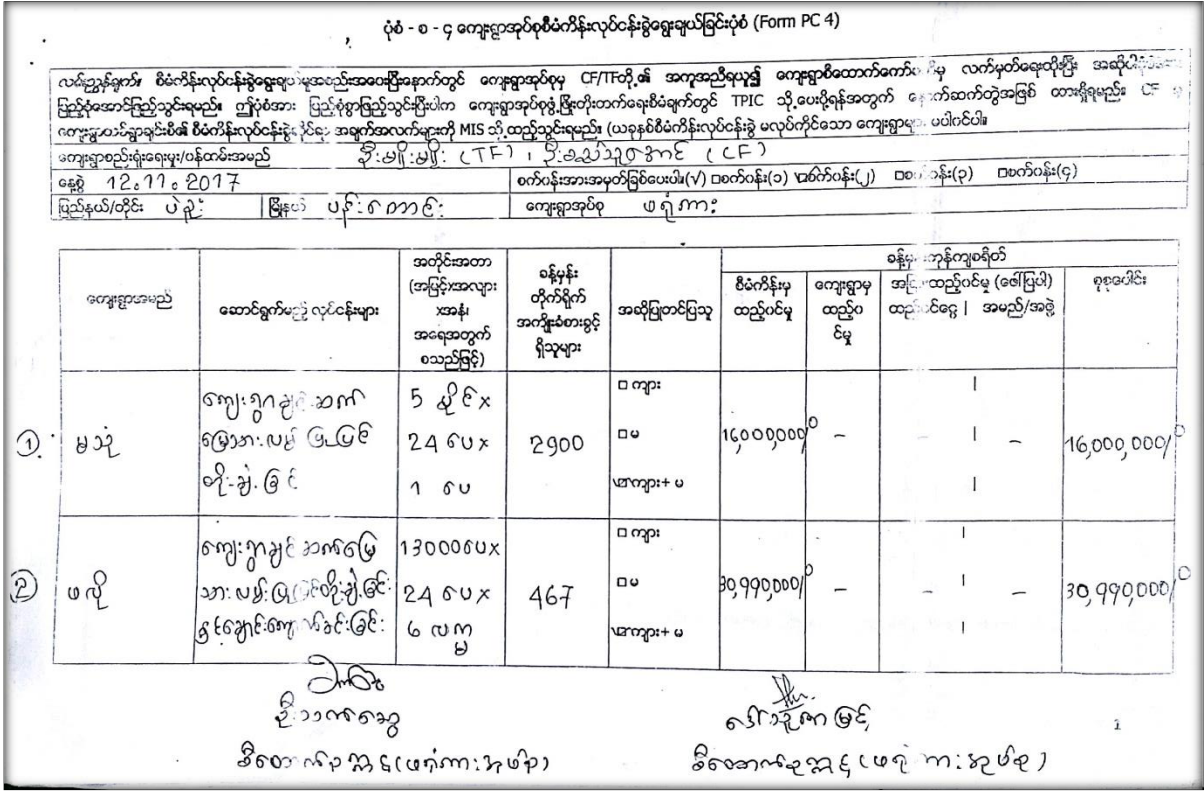 ပုံစံ - စ - ၄ ကျေးရွာအုပ်စုစီမံကိန်းလုပ်ငန်းခွဲရွေးချယ်ခြင်းပုံစံ (Form PC 4)
လမ်းညွှန်ချက်။ စီမံကိန်းလုပ်ငန်းခွဲရွေးချယ်မှုအစည်းအဝေးပြီးနောက်တွင် ကျေးရွာအုပ်စုမှ CF/TFတို့၏ အကူအညီရယူ၍ ကျေးရွာစီထောက်ကော်မတီမှ လက်မှတ်ရေးထိုးပြီး အဆိုပါပုံစံအား
ပြည့်စုံအောင်ဖြည့်သွင်းရမည်။ ဤပုံစံအား ပြည့်စုံစွာဖြည့်သွင်းပြီးပါက ကျေးရွာအုပ်စုဖွံ့ဖြိုးတက်ရေးစီမံချက်တွင် TPIC သို့ပေးပို့ရန်အတွက် နောက်ဆက်တွဲအဖြစ် ထားရှိရမည်။ CF မှ
ကျေးရွာတစ်ရွာချင်းစီ၏ စီမံကိန်းလုပ်ငန်းခွဲ အချက်အလက်များကို MIS သို့ထည့်သွင်းရမည်။ (ယခုနှစ်စီမံကိန်းလုပ်ငန်းခွဲ မလုပ်ကိုင်သော ကျေးရွာများ မပါဝင်ပါ။
ကျေးရွာစည်းရုံးရေးမှူး/ဝန်ထမ်းအမည် ဦးမျိုးမျိုး (TF) ၊ (CF)
နေ့စွဲ 12.11.2017 စက်ဝန်းအားအမှတ်ခြစ်ပေးပါ။(√) □စက်ဝန်း(၁) ☑စက်ဝန်း(၂) □စက်ဝန်း(၃) □စက်ဝန်း(၄)
ပြည်နယ်/တိုင်း ပဲခူး မြို့နယ် ပန်းတောင်း ကျေးရွာအုပ်စု ဖရုံကား
ကျေးရွာအမည် ဆောင်ရွက်မည့် လုပ်ငန်းများ အတိုင်းအတာ (အပြင့်)အလျား xအနံ၊ အရေအတွက် စသည်ဖြင့်) ခန့်မှန်း တိုက်ရိုက် အကျိုးခံစားခွင့် ရှိသူများ အဆိုပြုတင်ပြသူ ခန့်မှန်းကုန်ကျစရိတ်
စီမံကိန်းမှ ထည့်ဝင်မှု ကျေးရွာမှ ထည့်ဝင်မှု အခြားထည့်ဝင်မှု (ဖော်ပြပါ) ထည့်ဝင်ငွေ | အမည်/အဖွဲ့ စုစုပေါင်း
ကျေးရွာချင်းဆက် 5 မိုင် x □ ကျား
① မသုံ မြေသားလမ်း ပြုပြင် 24 ပေ x 2900 □ မ 16,000,000/ – – 16,000,000/
တိုးချဲ့ခြင်း 1 ပေ ☑ ကျား+ မ
ကျေးရွာချင်းဆက်မြေ 13000ပေ x □ ကျား
② ဖလို သားလမ်းပြုပြင်တိုးချဲ့ခြင်း 24 ပေ x 467 □ မ 30,990,000/ – – 30,990,000/
နှင့်ချောင်းကျောက်ခင်းခြင်း 6 လက္မ ☑ ကျား+ မ
ဦးသက်ဆွေ ဒေါ်သူဇာမြင့်
စီထောက်ဥက္ကဋ္ဌ(ဖရုံကားအုပ်စု) စီထောက်ဥက္ကဋ္ဌ(ဖရုံကားအုပ်စု)
1